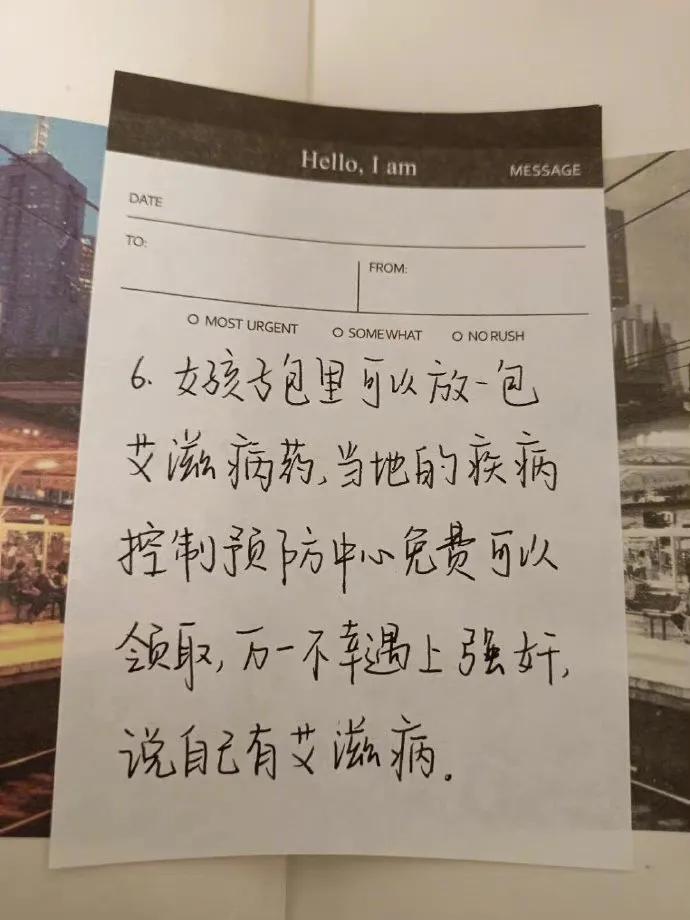 Hello, I am
MESSAGE
DATE
TO:
FROM:
MOST URGENT
SOMEWHAT
NO RUSH
6. 女孩子包里可以放一包
艾滋病药,当地的疾病
控制预防中心免费可以
领取,万一不幸遇上强奸,
说自己有艾滋病.